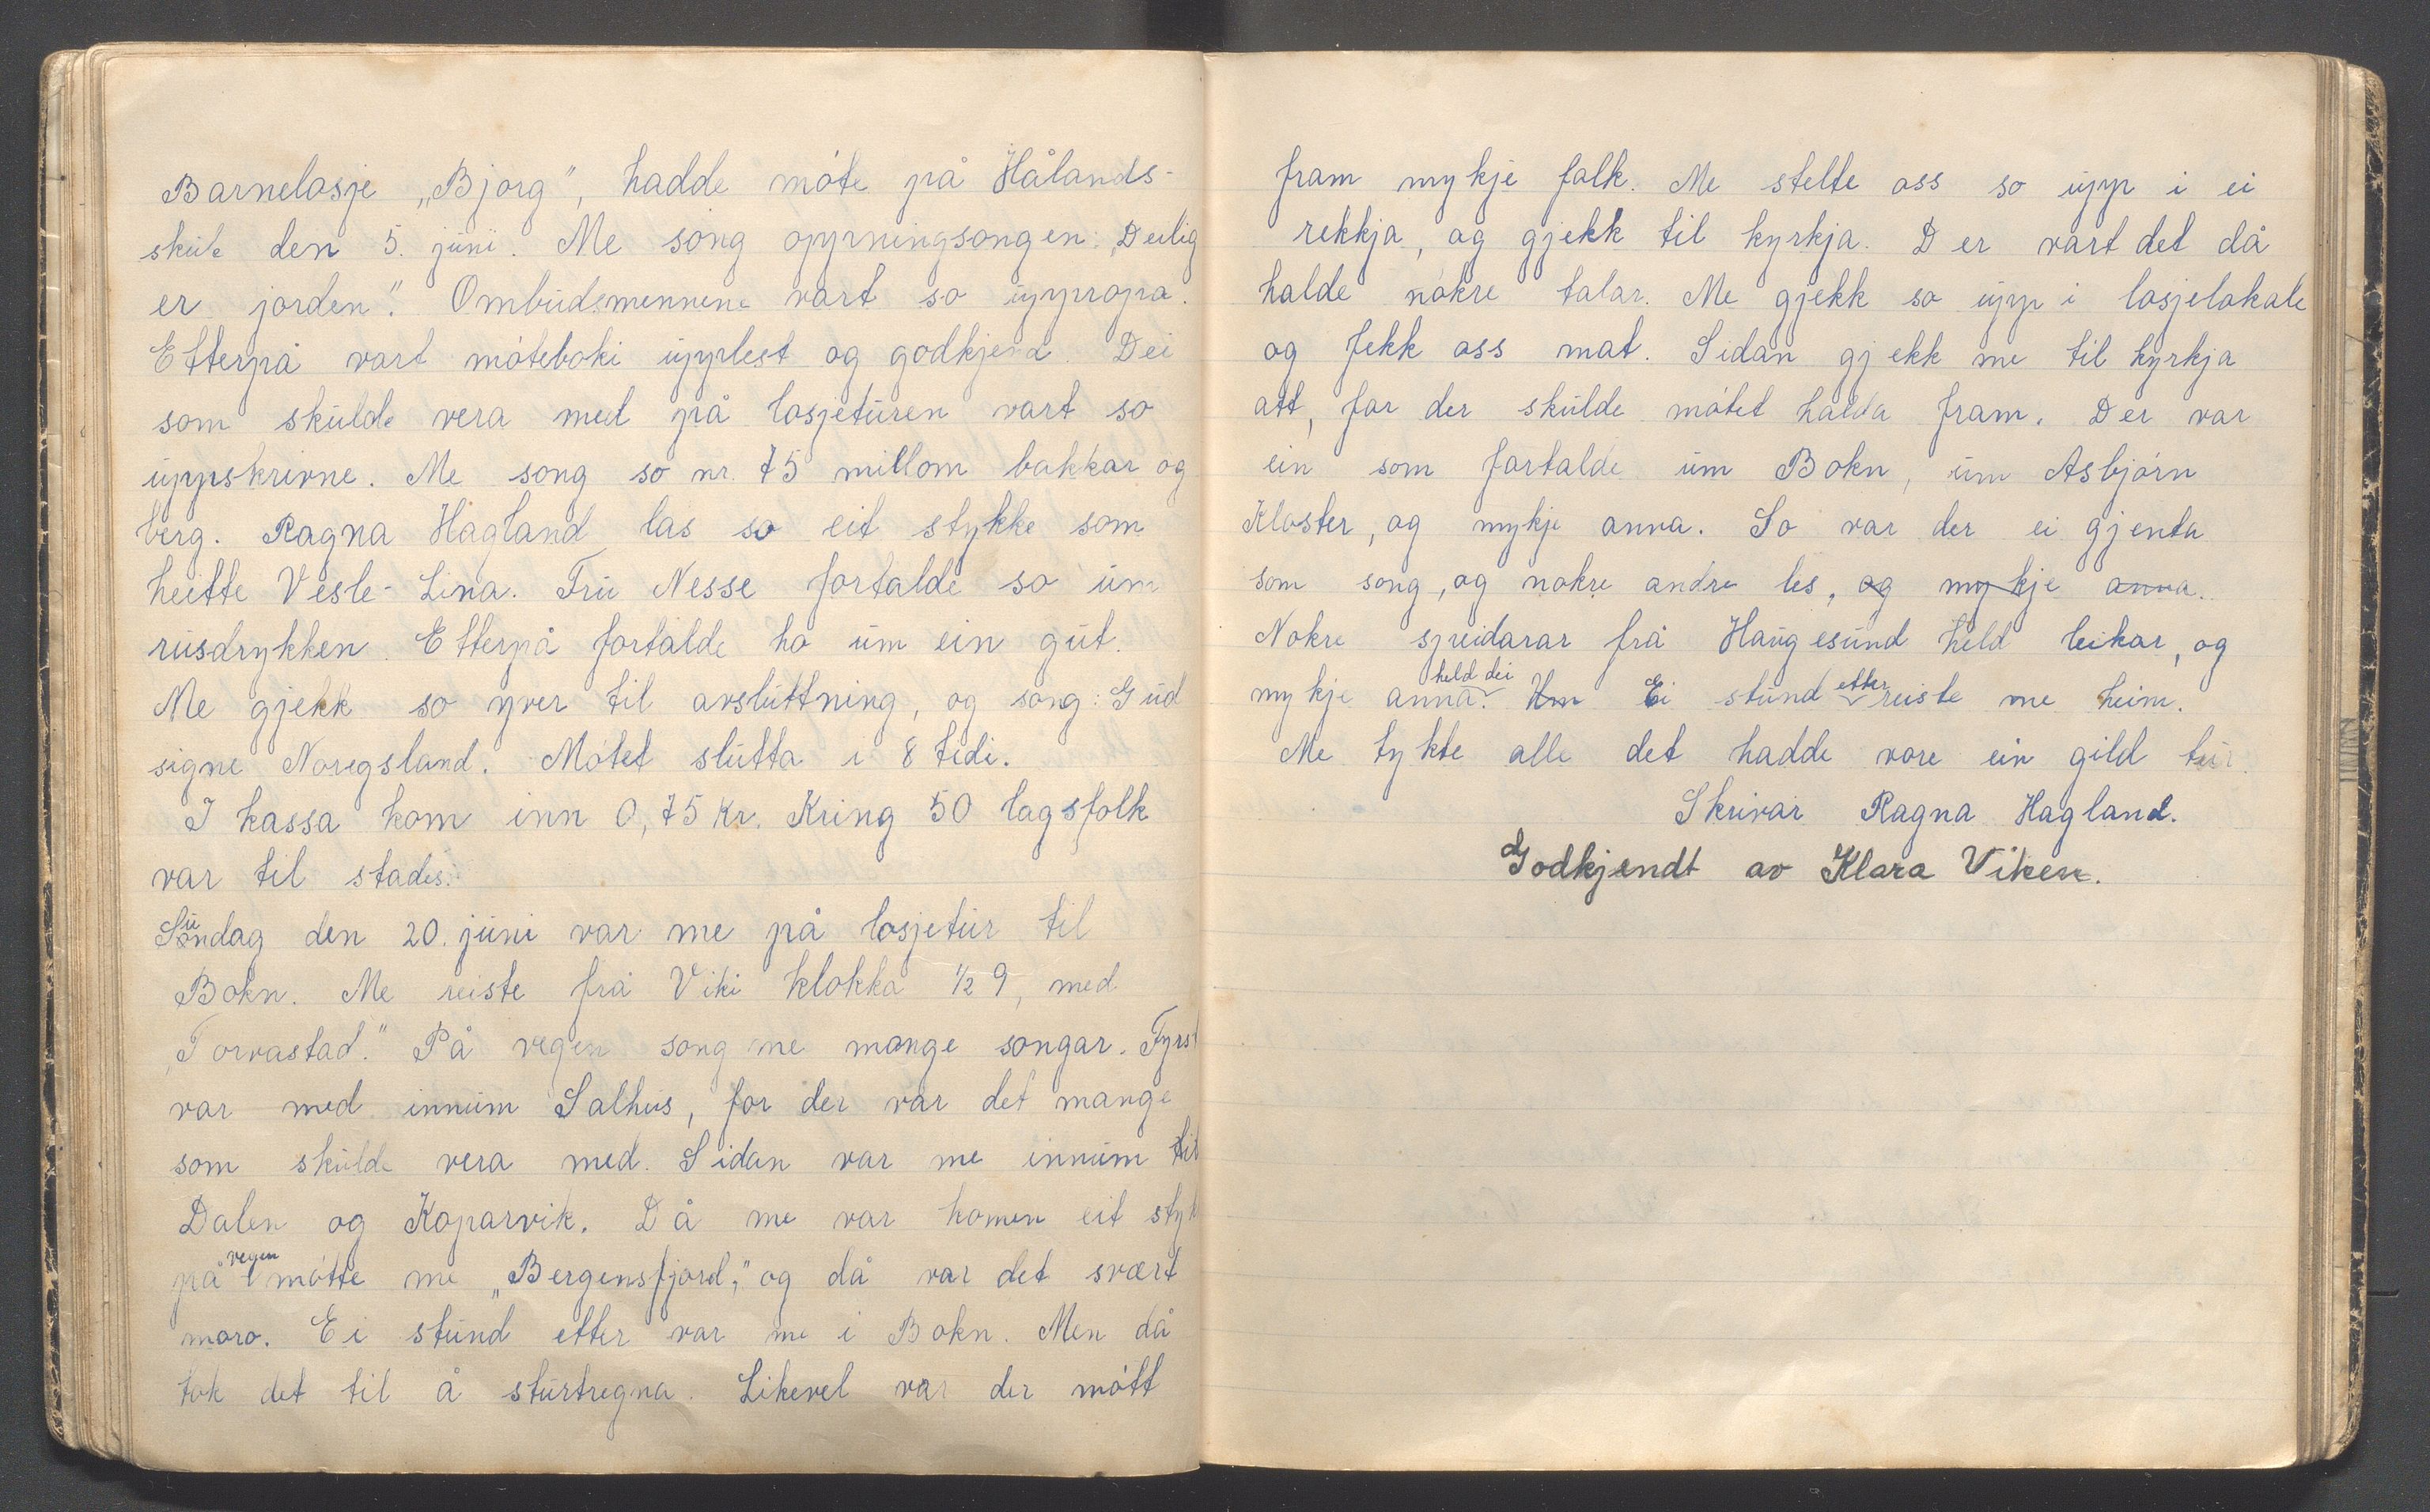 Barnelosje „Bjørg", hadde møte på Hålands-
skule den 5. juni. Me song opningsongen: „Deilig
er jorden." Ombudsmennene vart so uppropa.
Etterpå vart møteboki upplest og godkjend. Dei
som skulde vera med på losjeturen vart so
uppskrivne. Me song so nr. 75 millom bakkar og
berg. Ragna Hagland las so eit stykke som
heitte Vesle-Lina. Fru Nesse fortalde so um
rusdrykken. Etterpå fortalde ho um ein gut.
Me gjekk so yver til avsluttning, og song: Gud
signe Noregsland. Møtet slutta i 8 tidi.
I kassa kom inn 0,75 kr. Kring 50 lagsfolk
var til stades.
Sundag den 20. juni var me på losjetur til
Bokn. Me reiste frå Viki klokka ½ 9, med
„Torvastad." På vegen song me mange songar. Fyrst
var med innum Salhus, for der var det mange
som skulde vera med. Sidan var me innum til
Dalen og Koparvik. Då me var komen eit styk
på vegen møtte me „Bergensfjord," og då var det svært
moro. Ei stund etter var me i Bokn. Men då
tok det til å sturtregna. Likevel var der møtt
fram mykje folk. Me stelte oss so upp i ei
rekkja, og gjekk til kyrkja. Der vart det då
halde nokre talar. Me gjekk so upp i losjelokale
og fekk oss mat. Sidan gjekk me til kyrkja
att, for der skulde møtet halda fram. Der var
ein som fortalde um Bokn, um Asbjørn
Kloster, og mykje anna. So var der ei gjenta
som song, og nokre andre les, og mykje anna.
Nokre speidarar frå Haugesund held leikar, og
mykje anna held dei. Um Ei stund etter reiste me heim.
Me tykte alle det hadde vore ein gild tur.
Skrivar Ragna Hagland.
Godkjendt av Klara Viken.